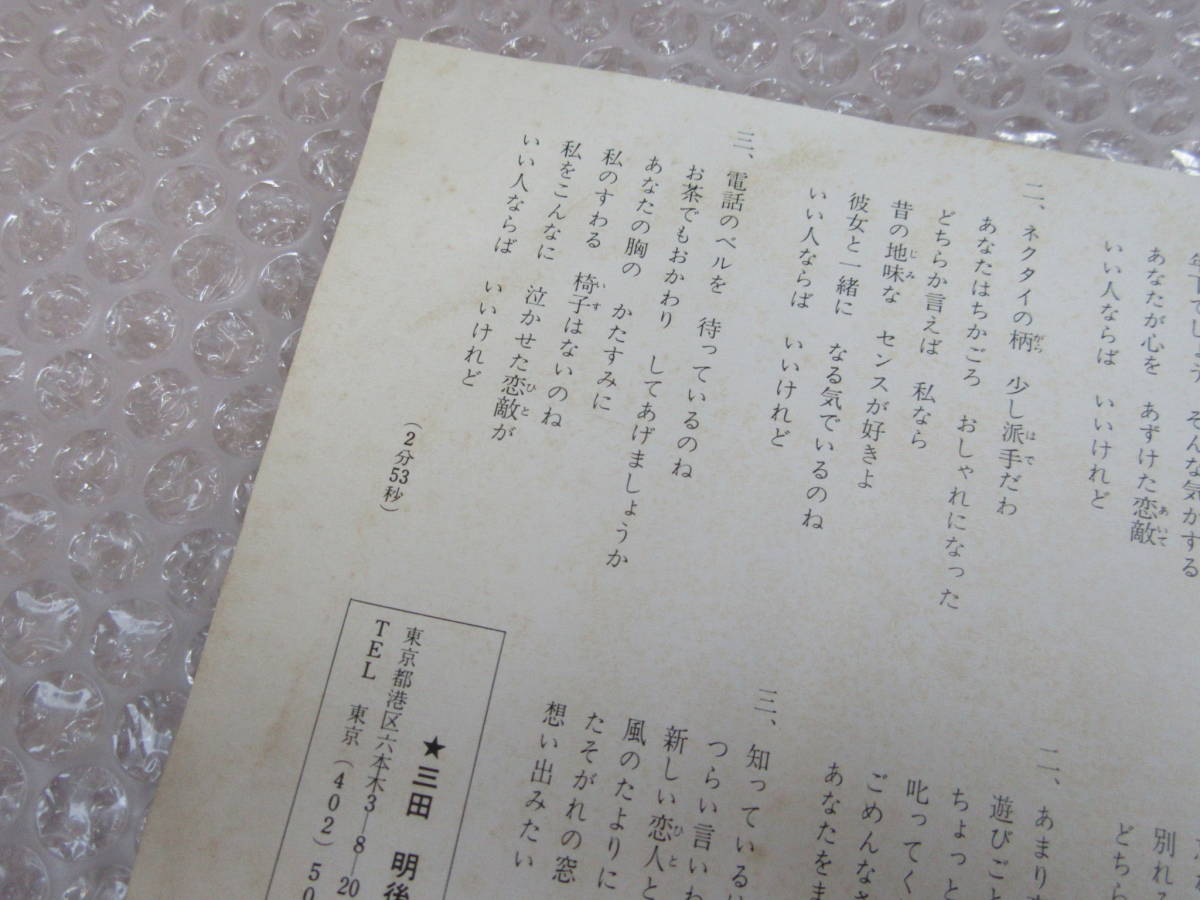 そんな気がする
あなたが心を　あずけた恋敵
いい人ならば　いいけれど
二、ネクタイの柄　少し派手だわ
あなたはちかごろ　おしゃれになった
どちらか言えば　私なら
昔の地味な　センスが好きよ
彼女と一緒に　なる気でいるのね
いい人ならば　いいけれど
三、電話のベルを　待っているのね
お茶でもおかわり　してあげましょうか
あなたの胸の　かたすみに
私のすわる　椅子はないのね
私をこんなに　泣かせた恋敵が
いい人ならば　いいけれど
(2分53秒)
別れ
どちら
二、あまり
遊びごと
ちょっと
叱ってく
ごめんなさ
あなたをま
三、知っている
つらい言いわ
新しい恋人と
風のたよりに
たそがれの窓
想い出みたい
★三田　明後
東京都港区六本木3―8―20
TEL　東京(402)50